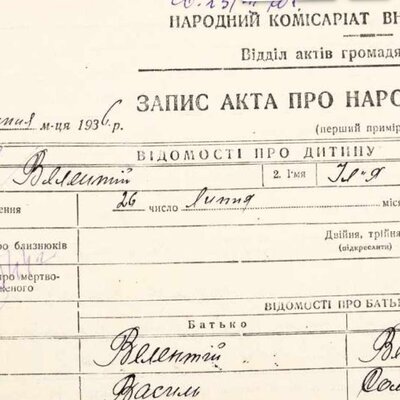 НАРОДНИЙ КОМІСАРІАТ ВН
Відділ актів громадя
ЗАПИС АКТА ПРО НАРО
м-ця 1936 р.
(перший примір
ВІДОМОСТІ ПРО ДИТИНУ
Велентій 2. Ім'я Ілля
ення 26 число Липня міс
ро близнюків Двійня, трійня
(відкреслити)
про мертво-
женого
ВІДОМОСТІ ПРО БАТЬ
Батько
Велентій Ве
Василь